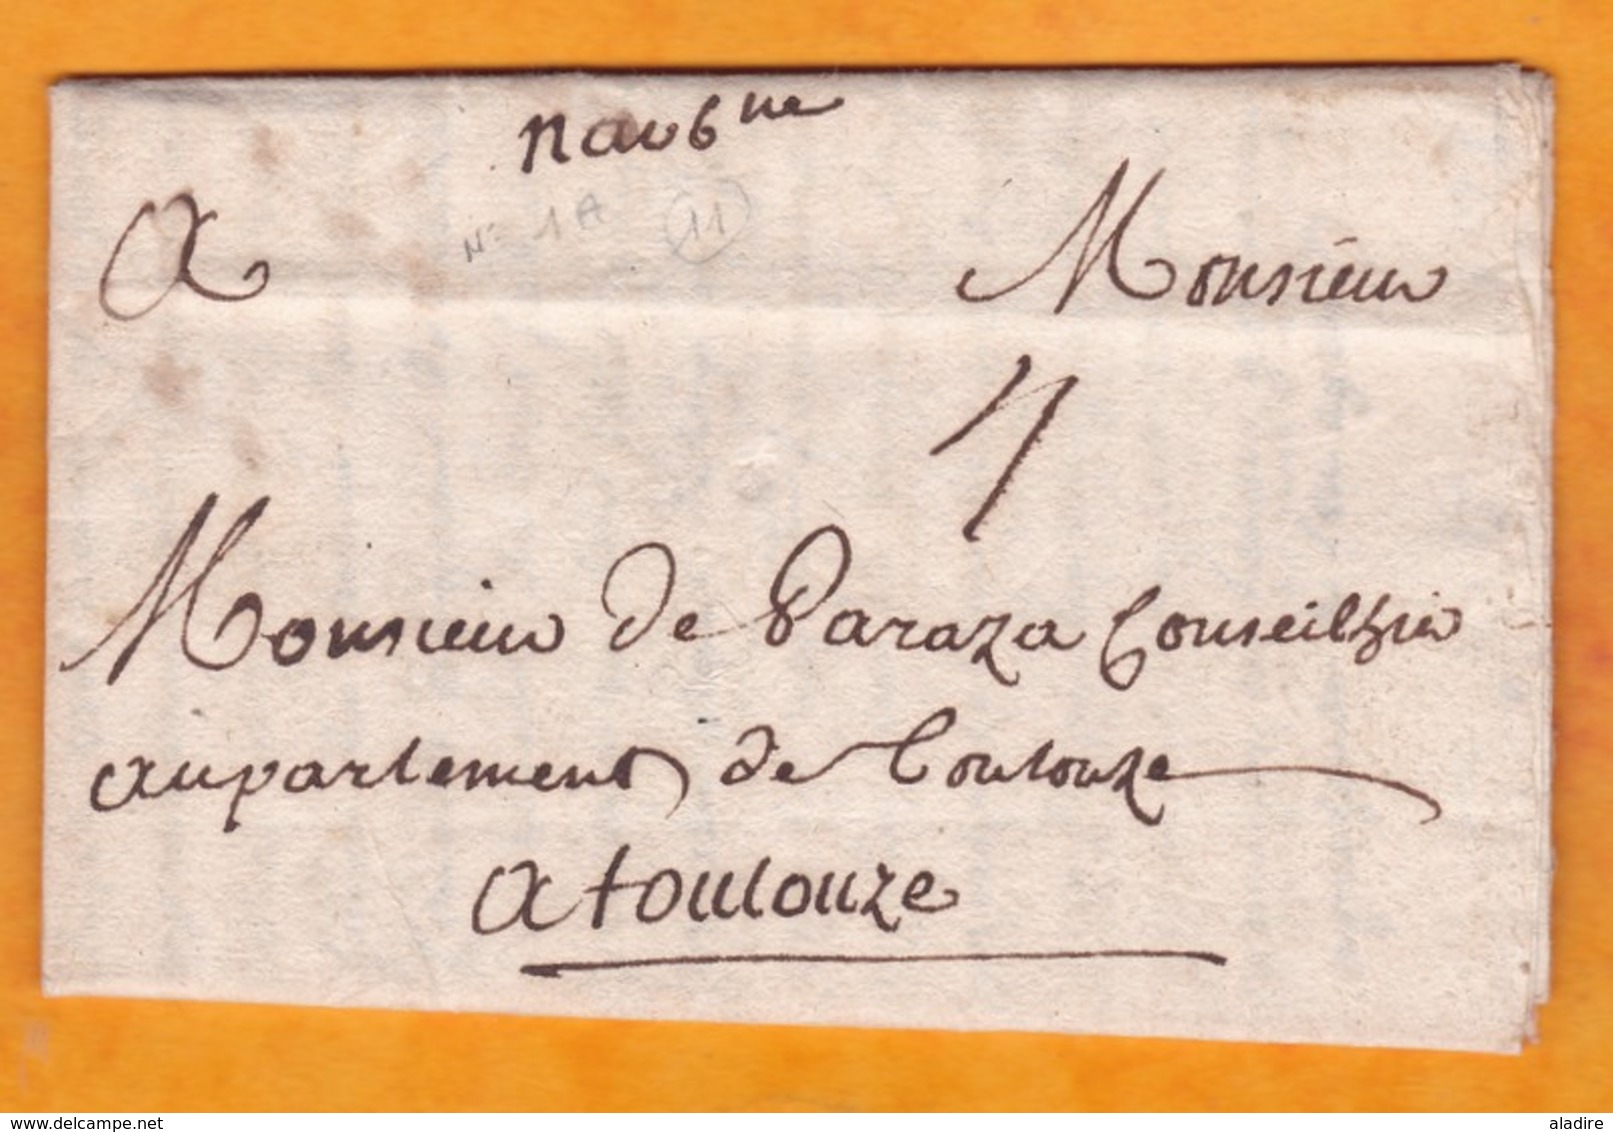 Narbne
N° 1A 11
A Monsieur
4
Monsieur de Paraza Conseilhier
au parlement de Toulouze
A toulouze
delcampe.net
aladire